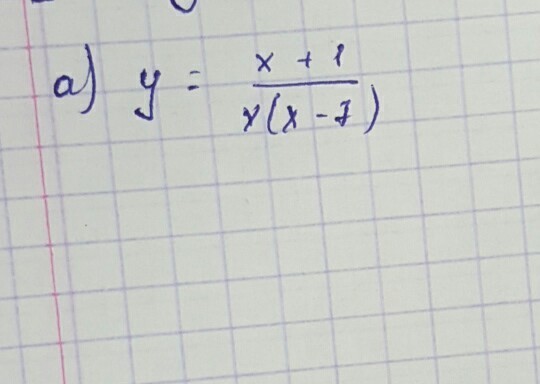 a) y = x + 1
x(x - 7)